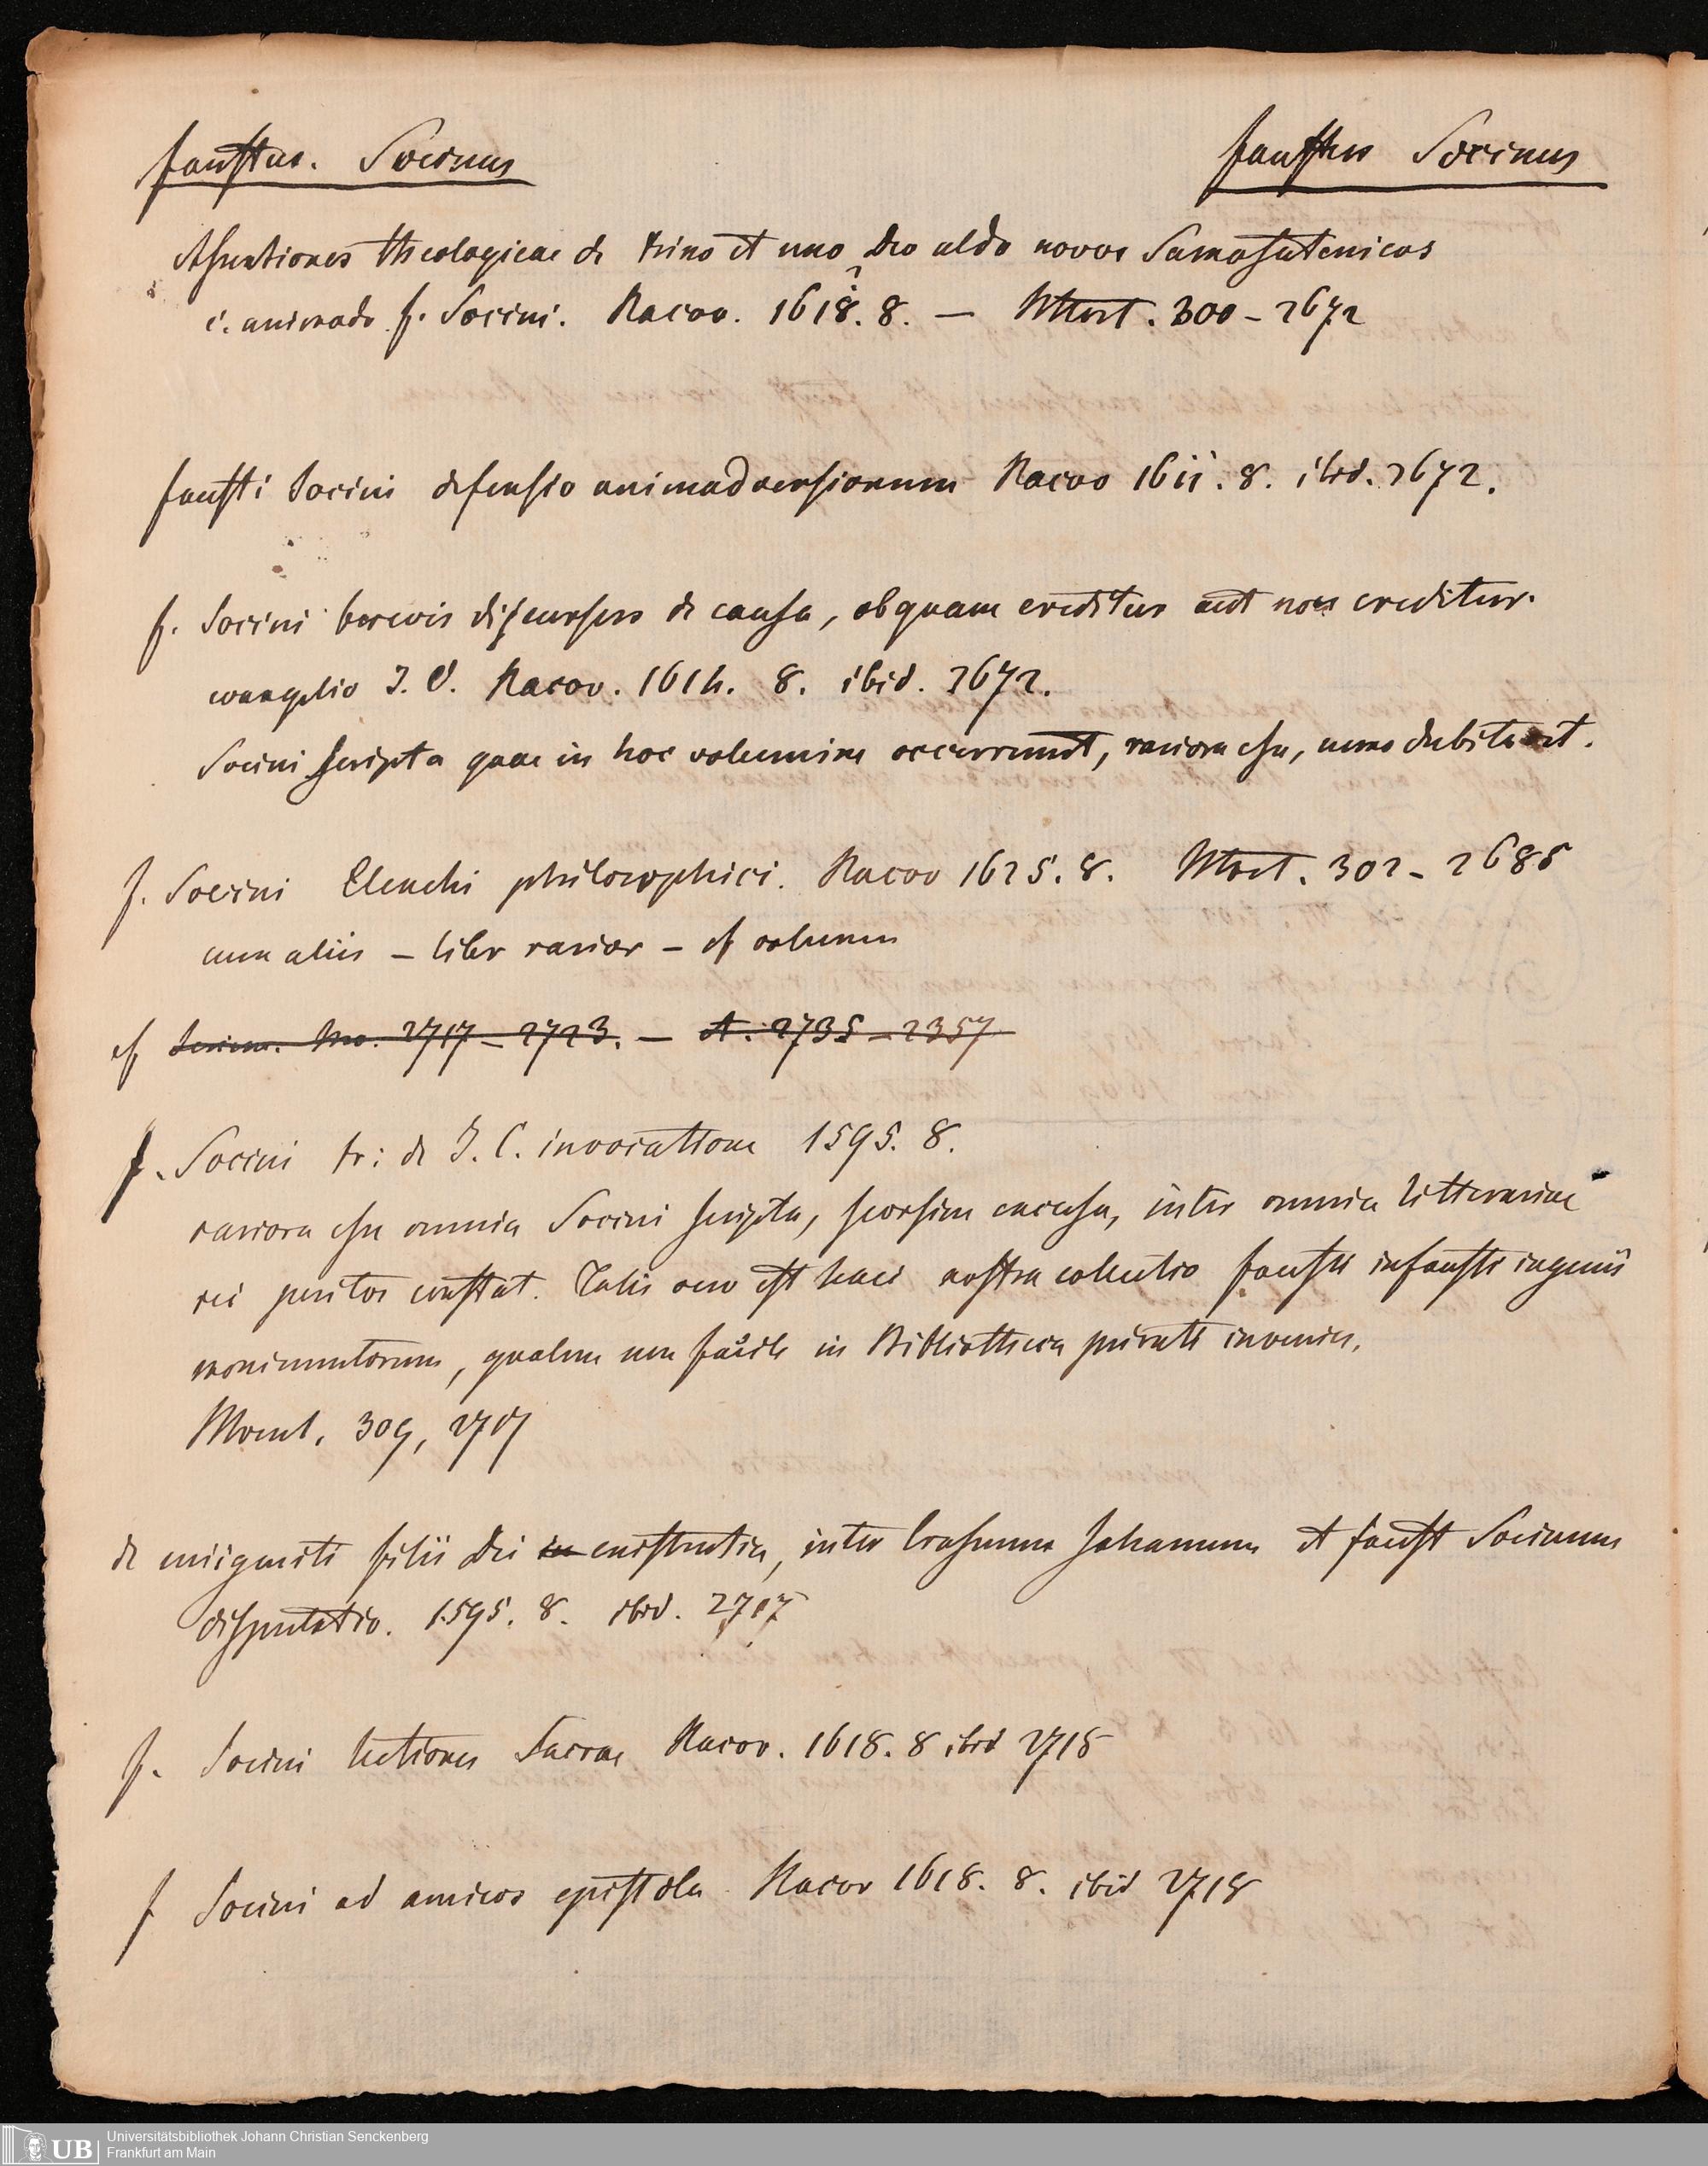 Faustus. Socinus Faustus Socinus
Assertiones theologicae de trino et uno Deo adv novos Samosatenicos
c. animadv F. Socini. Racov. 1618. 8. — 300 - 2672
Fausti Socini defensio animadversionum Racov 1611. 8. ibid. 2672.
F. Socini brevis discursus de causa, ob quam creditur aut non creditur
evangelio J. C. Racov. 1614. 8. ibid. 2672.
Socini scripta quae in hoc volumine occurrunt, rariora esse, nemo dubitat.
F. Socini Elenchi philosophici. Racov 1625. 8. 302 - 2688
cum aliis – liber rarior – cf volumen
cf 2717 – 2723. — 2735 – 2357
F. Socini tr: de J. C. invocatione 1595. 8.
rariora esse omnia Socini scripta, seorsim excusa, inter omnia litterariae
rei peritos constat. Talis vero est haec nostra collectio Fausti infausti ingenii
monimentorum, qualem non facile in Bibliotheca privati invenies.
309, 2717
de unigeniti filii Dei existentia, inter Erasmum Johannem et Faust Socinum
disputatio. 1595. 8. ibid. 2717
F. Socini lectiones Sacrae Racov. 1618. 8 ibid 2718
F Socini ad amicos epistola Racov 1618. 8. ibid 2718
UB
Universitätsbibliothek Johann Christian Senckenberg
Frankfurt am Main